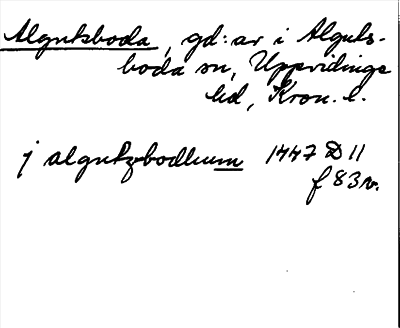 Algutsboda, gd:ar i Alguts-
boda sn, Uppvidinge
hd, Kron. l.
j algutzbodhum 1447 D 11
f 83 v.